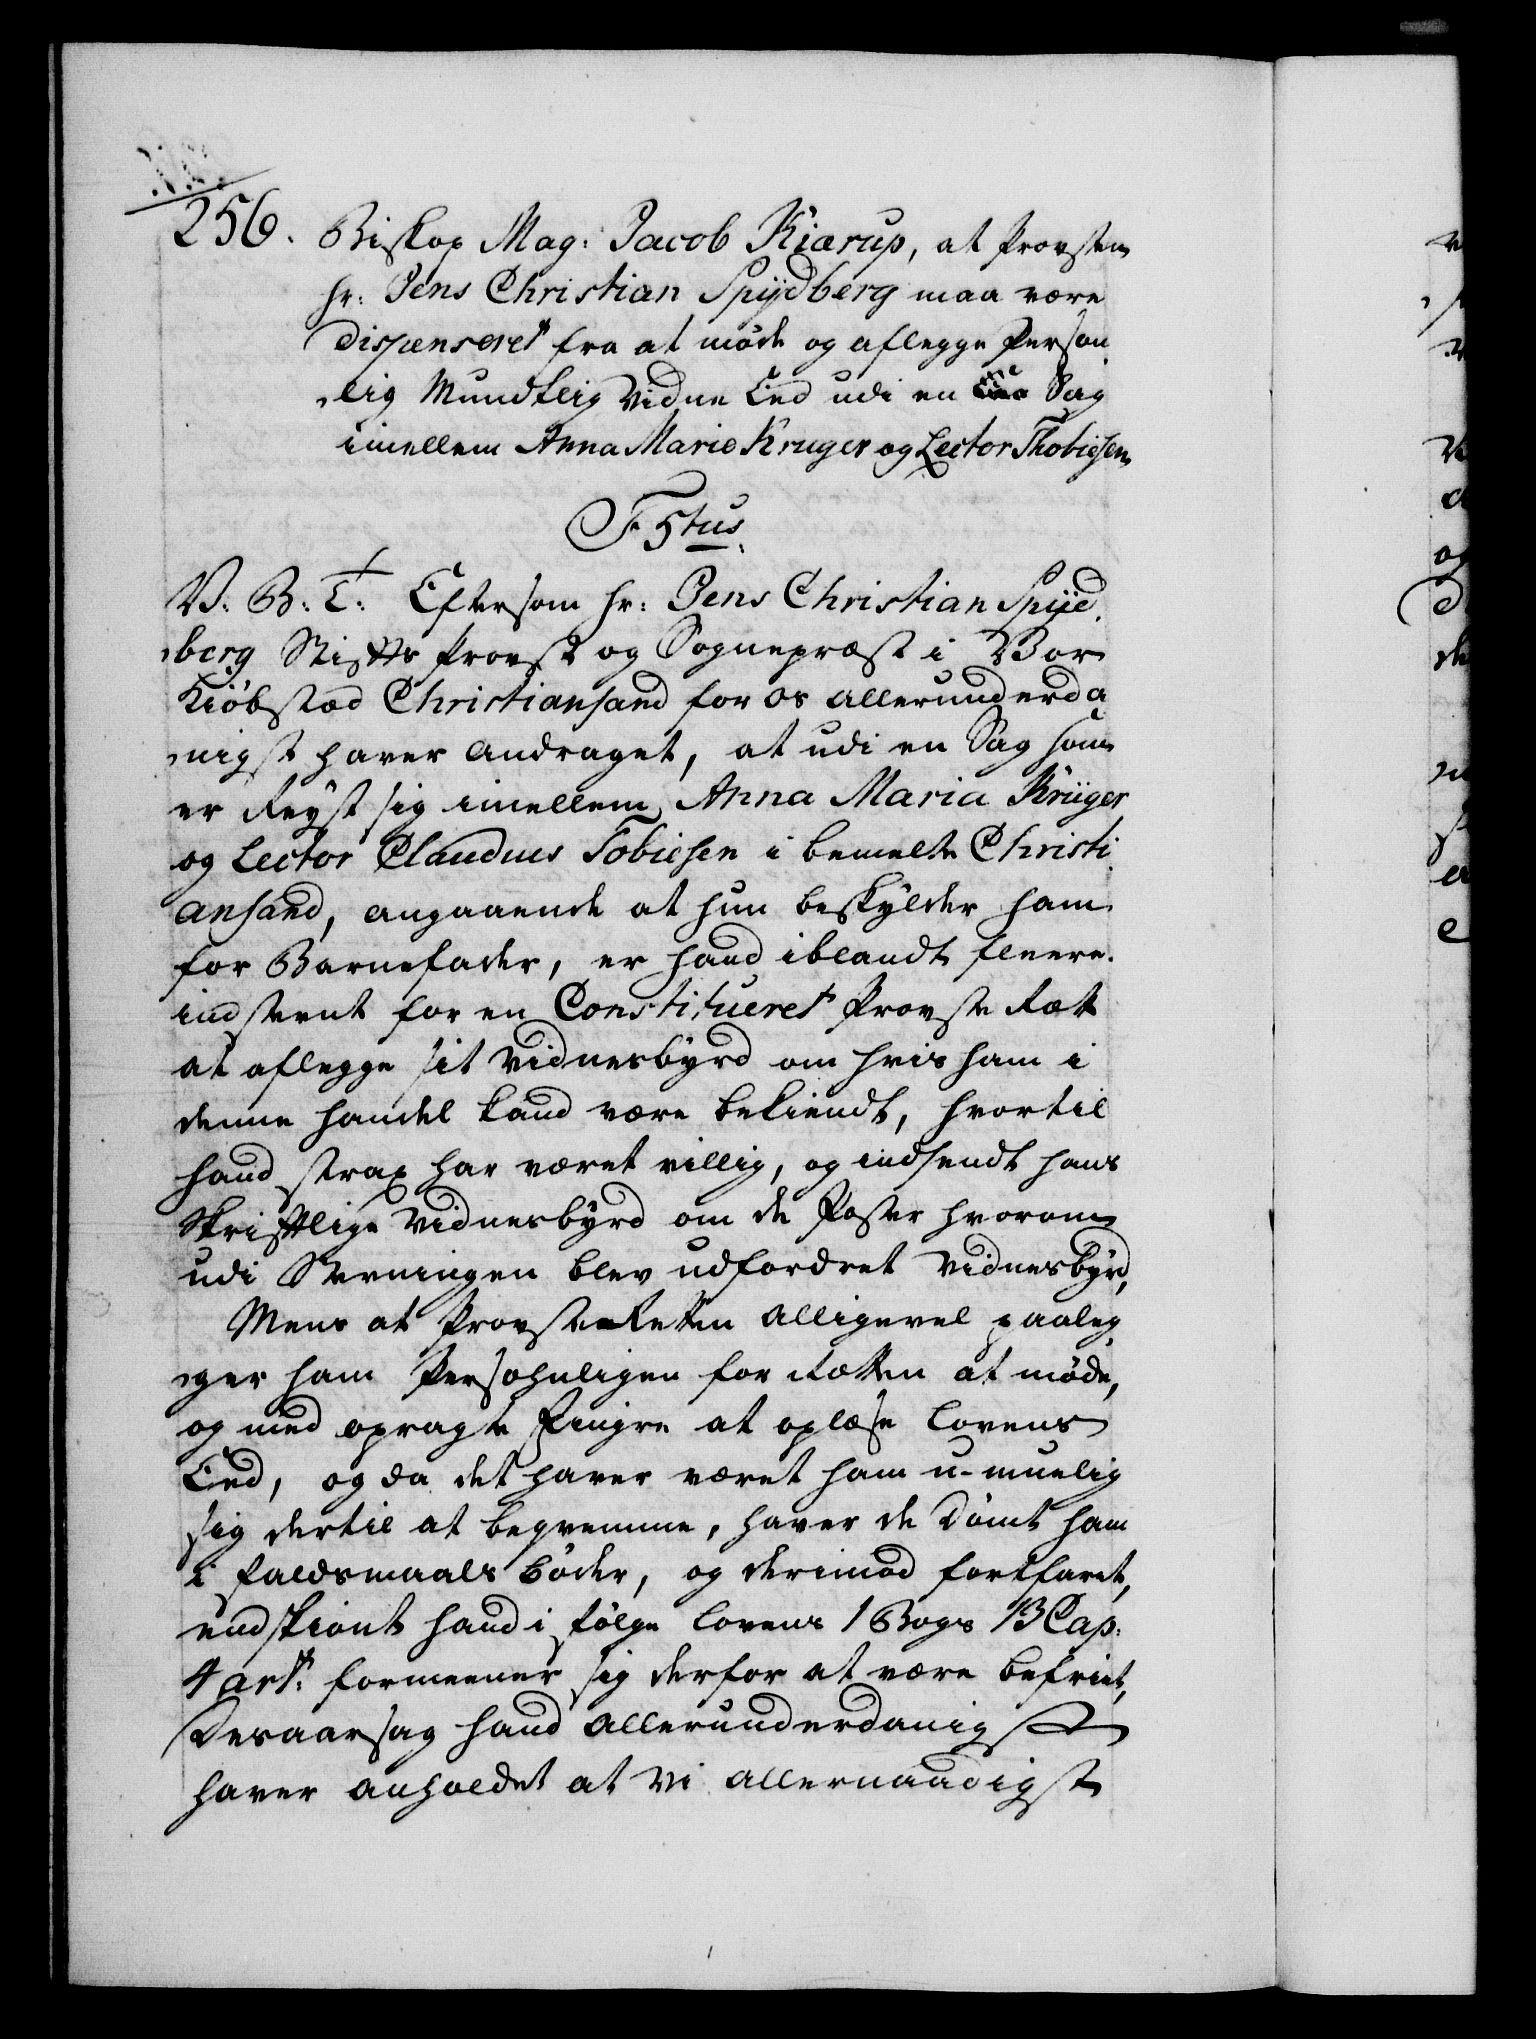 256. Biskop Mag: Jacob Kiærup, at Provsten
hr: Jens Christian Spijdberg maa være
dispenseret fra at møde og aflegge Person
lig Mundtlig Vidne Eed udi en Sag
imellem Anna Marie Kruger og Lector Thobiesen
F 5tus.
V: B: T: Eftersom hr: Jens Christian Spijd
berg Stiffts Provst og Sognepræst i Vor
Kiøbstæd Christiansand for os allerunderda
nigst haver andraget, at udi en Sag som
er Reyst sig imellem Anna Maria Krüger
og Lector Claudius Tobiesen i bemelte Christi
ansand, angaaende at hun beskylder ham
for Barnefader, er hand iblandt fleere
indstevnt for en Constitueret Provste Ræt
at aflegge sit Vidnesbyrd om hvis ham i
denne handel kand være bekiendt, hvortil
hand strax har været villig, og indsendt hans
Skrifftlige Vidnesbyrd om de Poster hvorom
udi Stevningen blev udfordret Vidnesbyrd,
Mens at Provste-Retten alligevel paaleg
ger ham Persohnligen for Rætten at møde,
og med opragte Fingre at oplæse Lovens
Eed, og da det haver været ham u-muelig
sig dertil at beqvemme, haver de dømt ham
i Faldsmaals bøder, og derimod fortfaret,
endskiønt hand i følge Lovens 1 Bogs 13 Cap:
4 art: formeener sig derfor at være befriet,
Desaarsag hand allerunderdanigst
haver anholdet at Vi allernaadigst